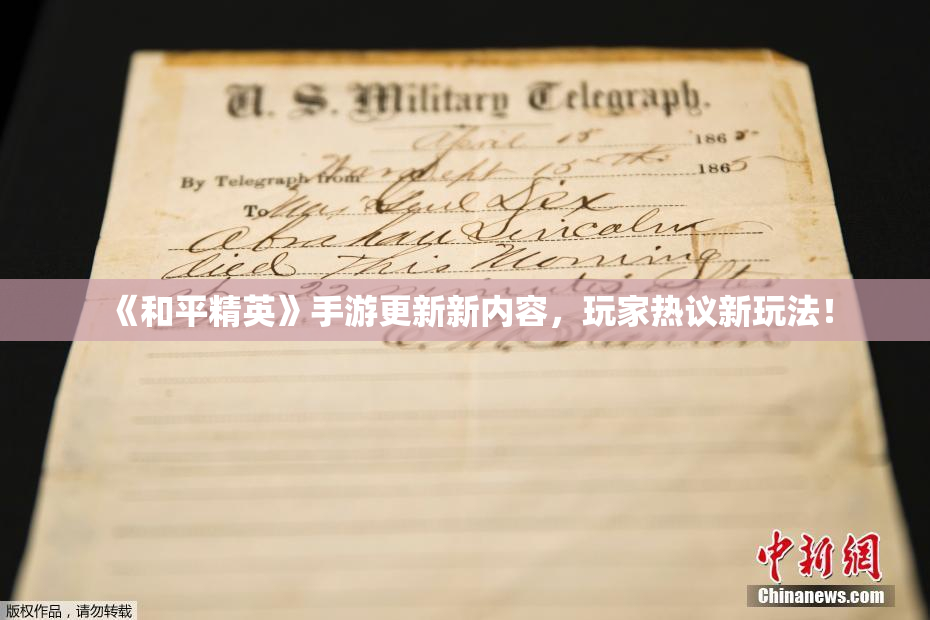 U. S. Military Telegraph.
April 15 1865
By Telegraph from War Dept 15th 1865
To Maj Genl Dix
Abraham Lincoln
died This Morning
22 minutes after
《和平精英》手游更新新内容，玩家热议新玩法！
中新网
Chinanews.com
版权作品，请勿转载